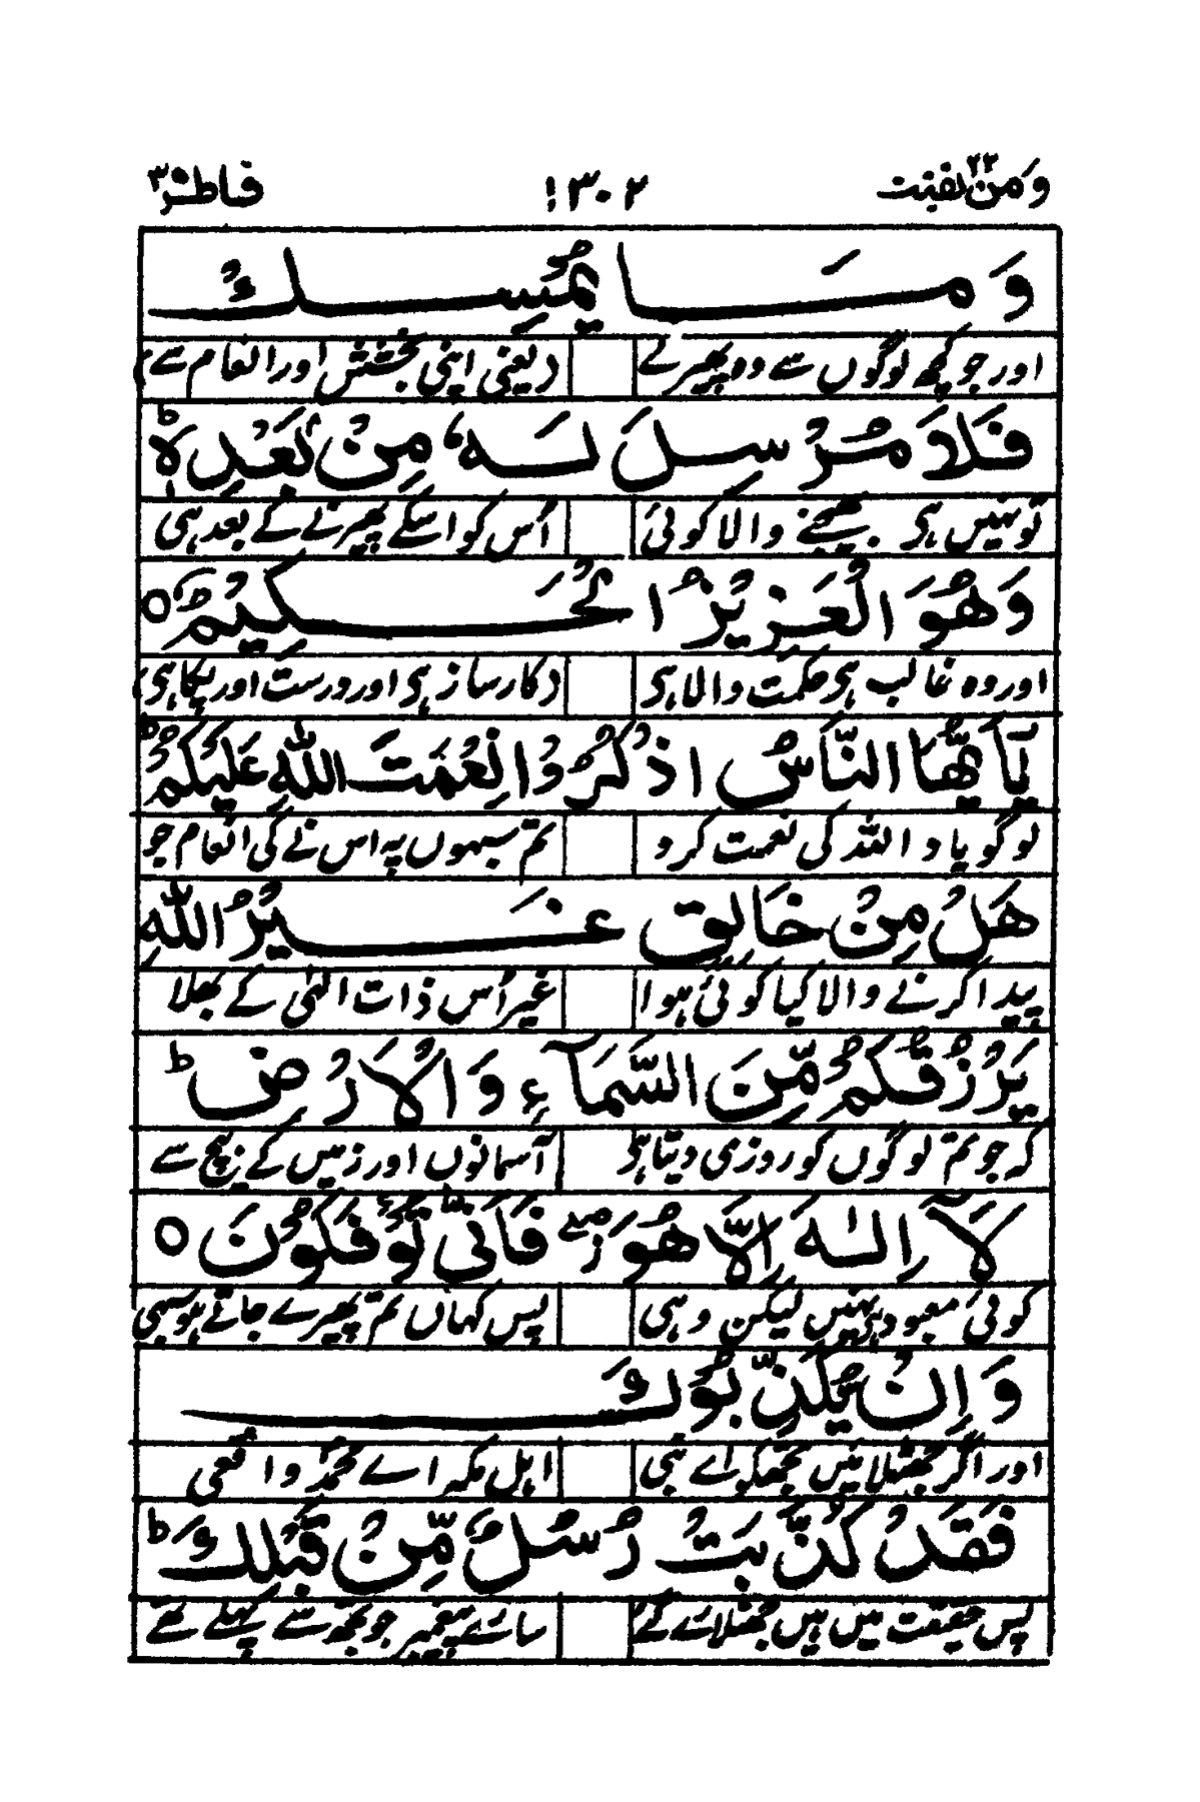 ومن یقنت ۲۲ ۱۳۰۲ فاطر ۳
وَمَا يُمْسِكْ
اور جو کچھ لوگوں سے وہ پھیر لے (یعنی اپنی بخشش اور انعام سے)
فَلَا مُرْسِلَ لَهٗ مِنْۢ بَعْدِهٖ ؕ
تو نہیں ہی بھیجنے والا کوئی اُس کو اسکے پھیرنے کے بعد ہی
وَهُوَ الْعَزِيْزُ الْحَكِيْمُ ۝
اور وہ غالب ہی حکمت والا ہی (کارساز ہی اور درست اور پکا ہی)
يٰٓاَيُّهَا النَّاسُ اذْكُرُوْا نِعْمَتَ اللّٰهِ عَلَيْكُمْ ؕ
لوگو یاد اللہ کی نعمت کرو تم سبھوں پہ اس نے کی انعام جو
هَلْ مِنْ خَالِقٍ غَيْرُ اللّٰهِ
پیدا کرنے والا کیا کوئی ہوا غیر اُس ذات الٰہی کے بھلا
يَرْزُقُكُمْ مِّنَ السَّمَآءِ وَالْاَرْضِ ؕ
کہ جو تم لوگوں کو روزی دیتا ہی آسمانوں اور زمیں کے بیچ سے
لَآ اِلٰهَ اِلَّا هُوَ ۖ فَاَنّٰى تُؤْفَكُوْنَ ۝
کوئی معبود ہی نہیں لیکن وہی پس کہاں تم پھیرے جاتے ہو سبھی
وَاِنْ يُّكَذِّبُوْكَ
اور اگر جھٹلائیں تجھکو اے نبی اہل مکہ اے محمد واقعی
فَقَدْ كُذِّبَتْ رُسُلٌ مِّنْ قَبْلِكَ ؕ
پس حقیقت میں ہیں جھٹلائے گئے سارے پیغمبر جو تجھ سے پہلے تھے